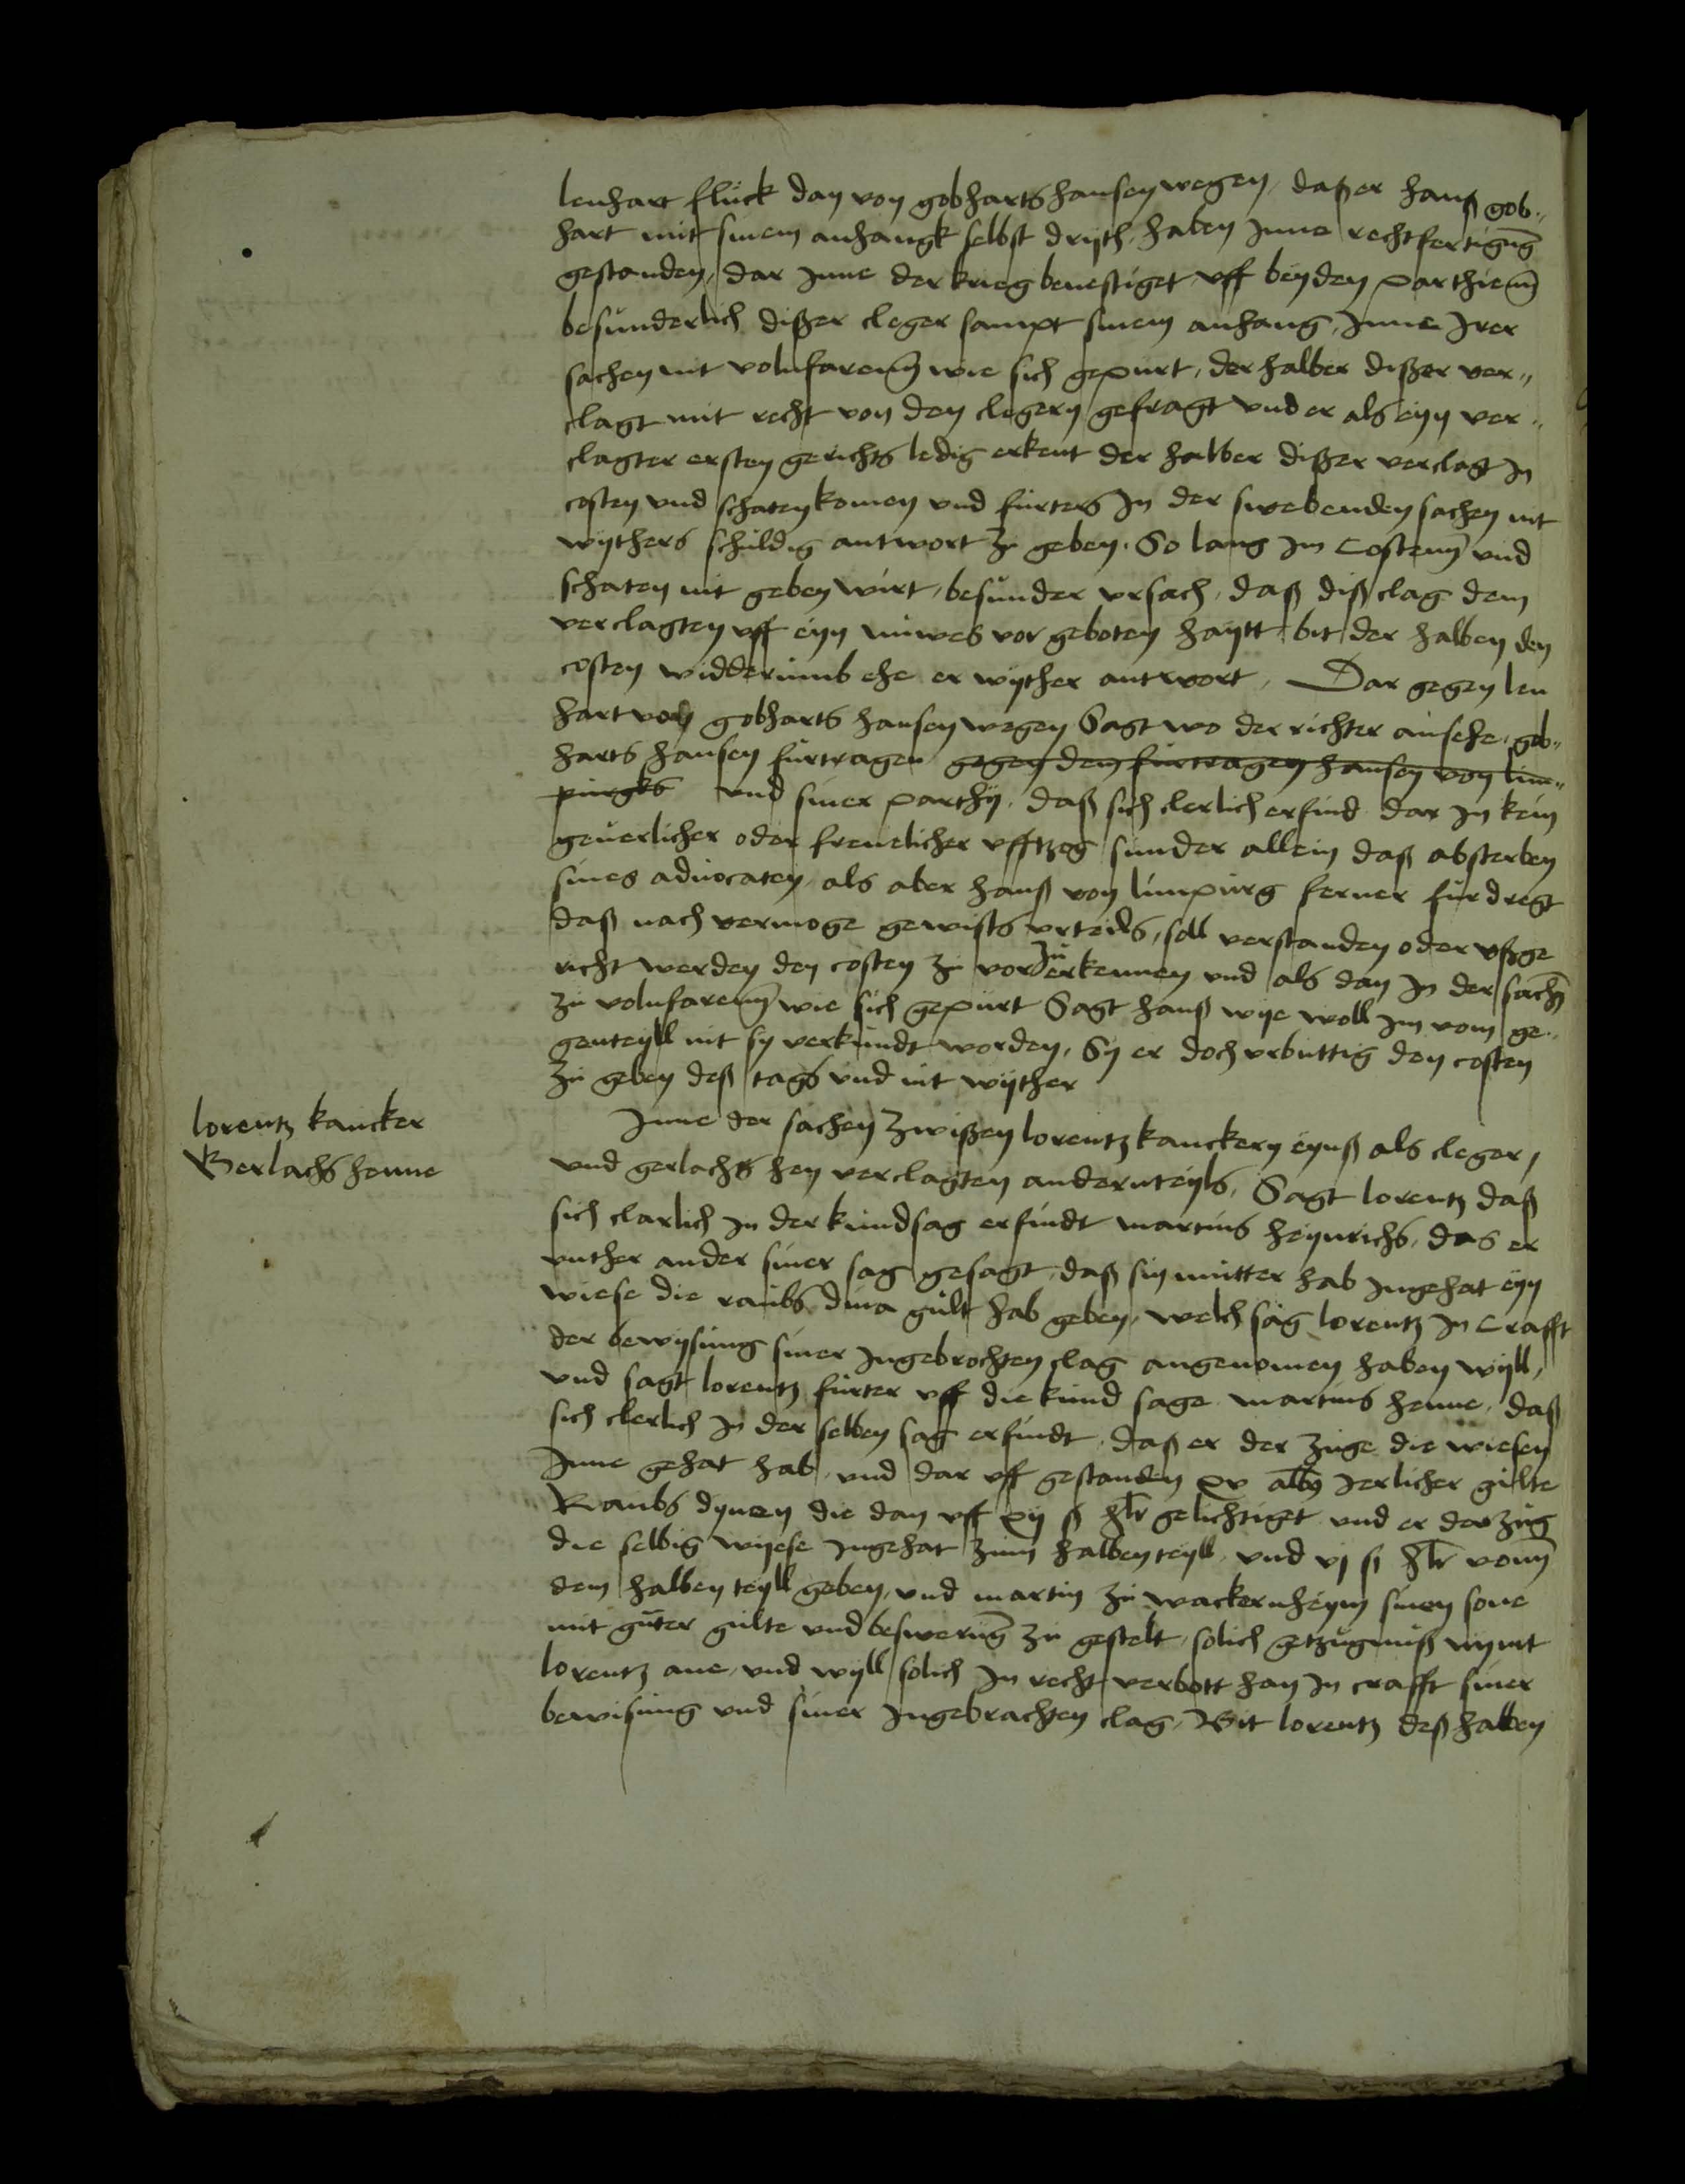 lenhart fluck dan von gobharts hansen wegen, daß er hanß gob„
hart mit sinem anhangk selbst dryth, haben Inne rechtfertigung
gestanden, dar Inne der krieg benestiget uff beyden parthienn
besunderlich dißer cleger sampt sinem anhang, Inne Irer
sachen nit volnfarenn wie sich gepurt, derhalber dißer ver„
clagt mit recht von den clegern gefragt und er als eyn ver„
clagter ersten gerichts ledig erkent der halber dißer verclagt In
costen und schaten komen und furters In der swebenden sachen nit
wythers schuldig antwort zu geben. So lang Im Costenn und
schaten nit geben wirt, besunder ursach, daß diß clag dem
verclagten uff eyn nuwes vor geboten haytt bit der halben den
costen widderumb ehe er wyther antwort, Dar gegen len
hart von gobharts hansen wegen Sagt wo der richter ansehe, gob„
harts hansen furtragen gegen dem furtragen hansen von lim„
purgks und siner parthy, daß sich clerlich erfind dar In kein
geuerlicher oder freuelicher ufftzog sunder allein daß absterben
sines aduocaten, als aber hanß von limpurg ferner furdregt
daß nach vermoge gewists urteils, soll verstanden oder ußge
richt werden den costen zu vor zu erkennen und als dan In der sachen
zu volnfarenn wie sich gepurt Sagt hanß wye woll Im vom ge„
genteyll nit sy verkundt worden, Sy er doch urbuttig den costen
zu geben deß tags und nit wyther
lorentz kancker
Gerlachs henne
Inne der sachen zwißen lorentz kanckern eynß als cleger,
und gerlachs hen verclagten anderuteyls, Sagt lorentz daß
sich clarlich In der kundsag erfindt martins heynrichs, das er
unther ander siner sag gesagt, daß sin mutter hab Ingehat eyn
wiese die raubs dina gult hab geben, welch sag lorentz In Crafft
der bewysung siner Ingebrochten clag angenomen haben wyll,
und sagt lorentz furter uff die kund sage martins henne, daß
sich clerlich In der selben sag erfindt, daß er der zuge die wiesen
Inne gehat hab, und dar uff gestanden xv albus Jerlicher gulte
Raubs dynen die dan uff xij ß hlr gelichtiget und er der zug
die selbig wyese Ingehat zum halben teyll, und vj ß hlr vonn
dem halben teyll geben, und martin zu wackernheym sinen sone
mit guter gulte und beswerung zu gestelt, solich getzugnuß nymt
lorentz ane, und wyll solich In recht verbott han In crafft siner
bewisung und siner Ingebrachten clag, Bit lorentz deß halben